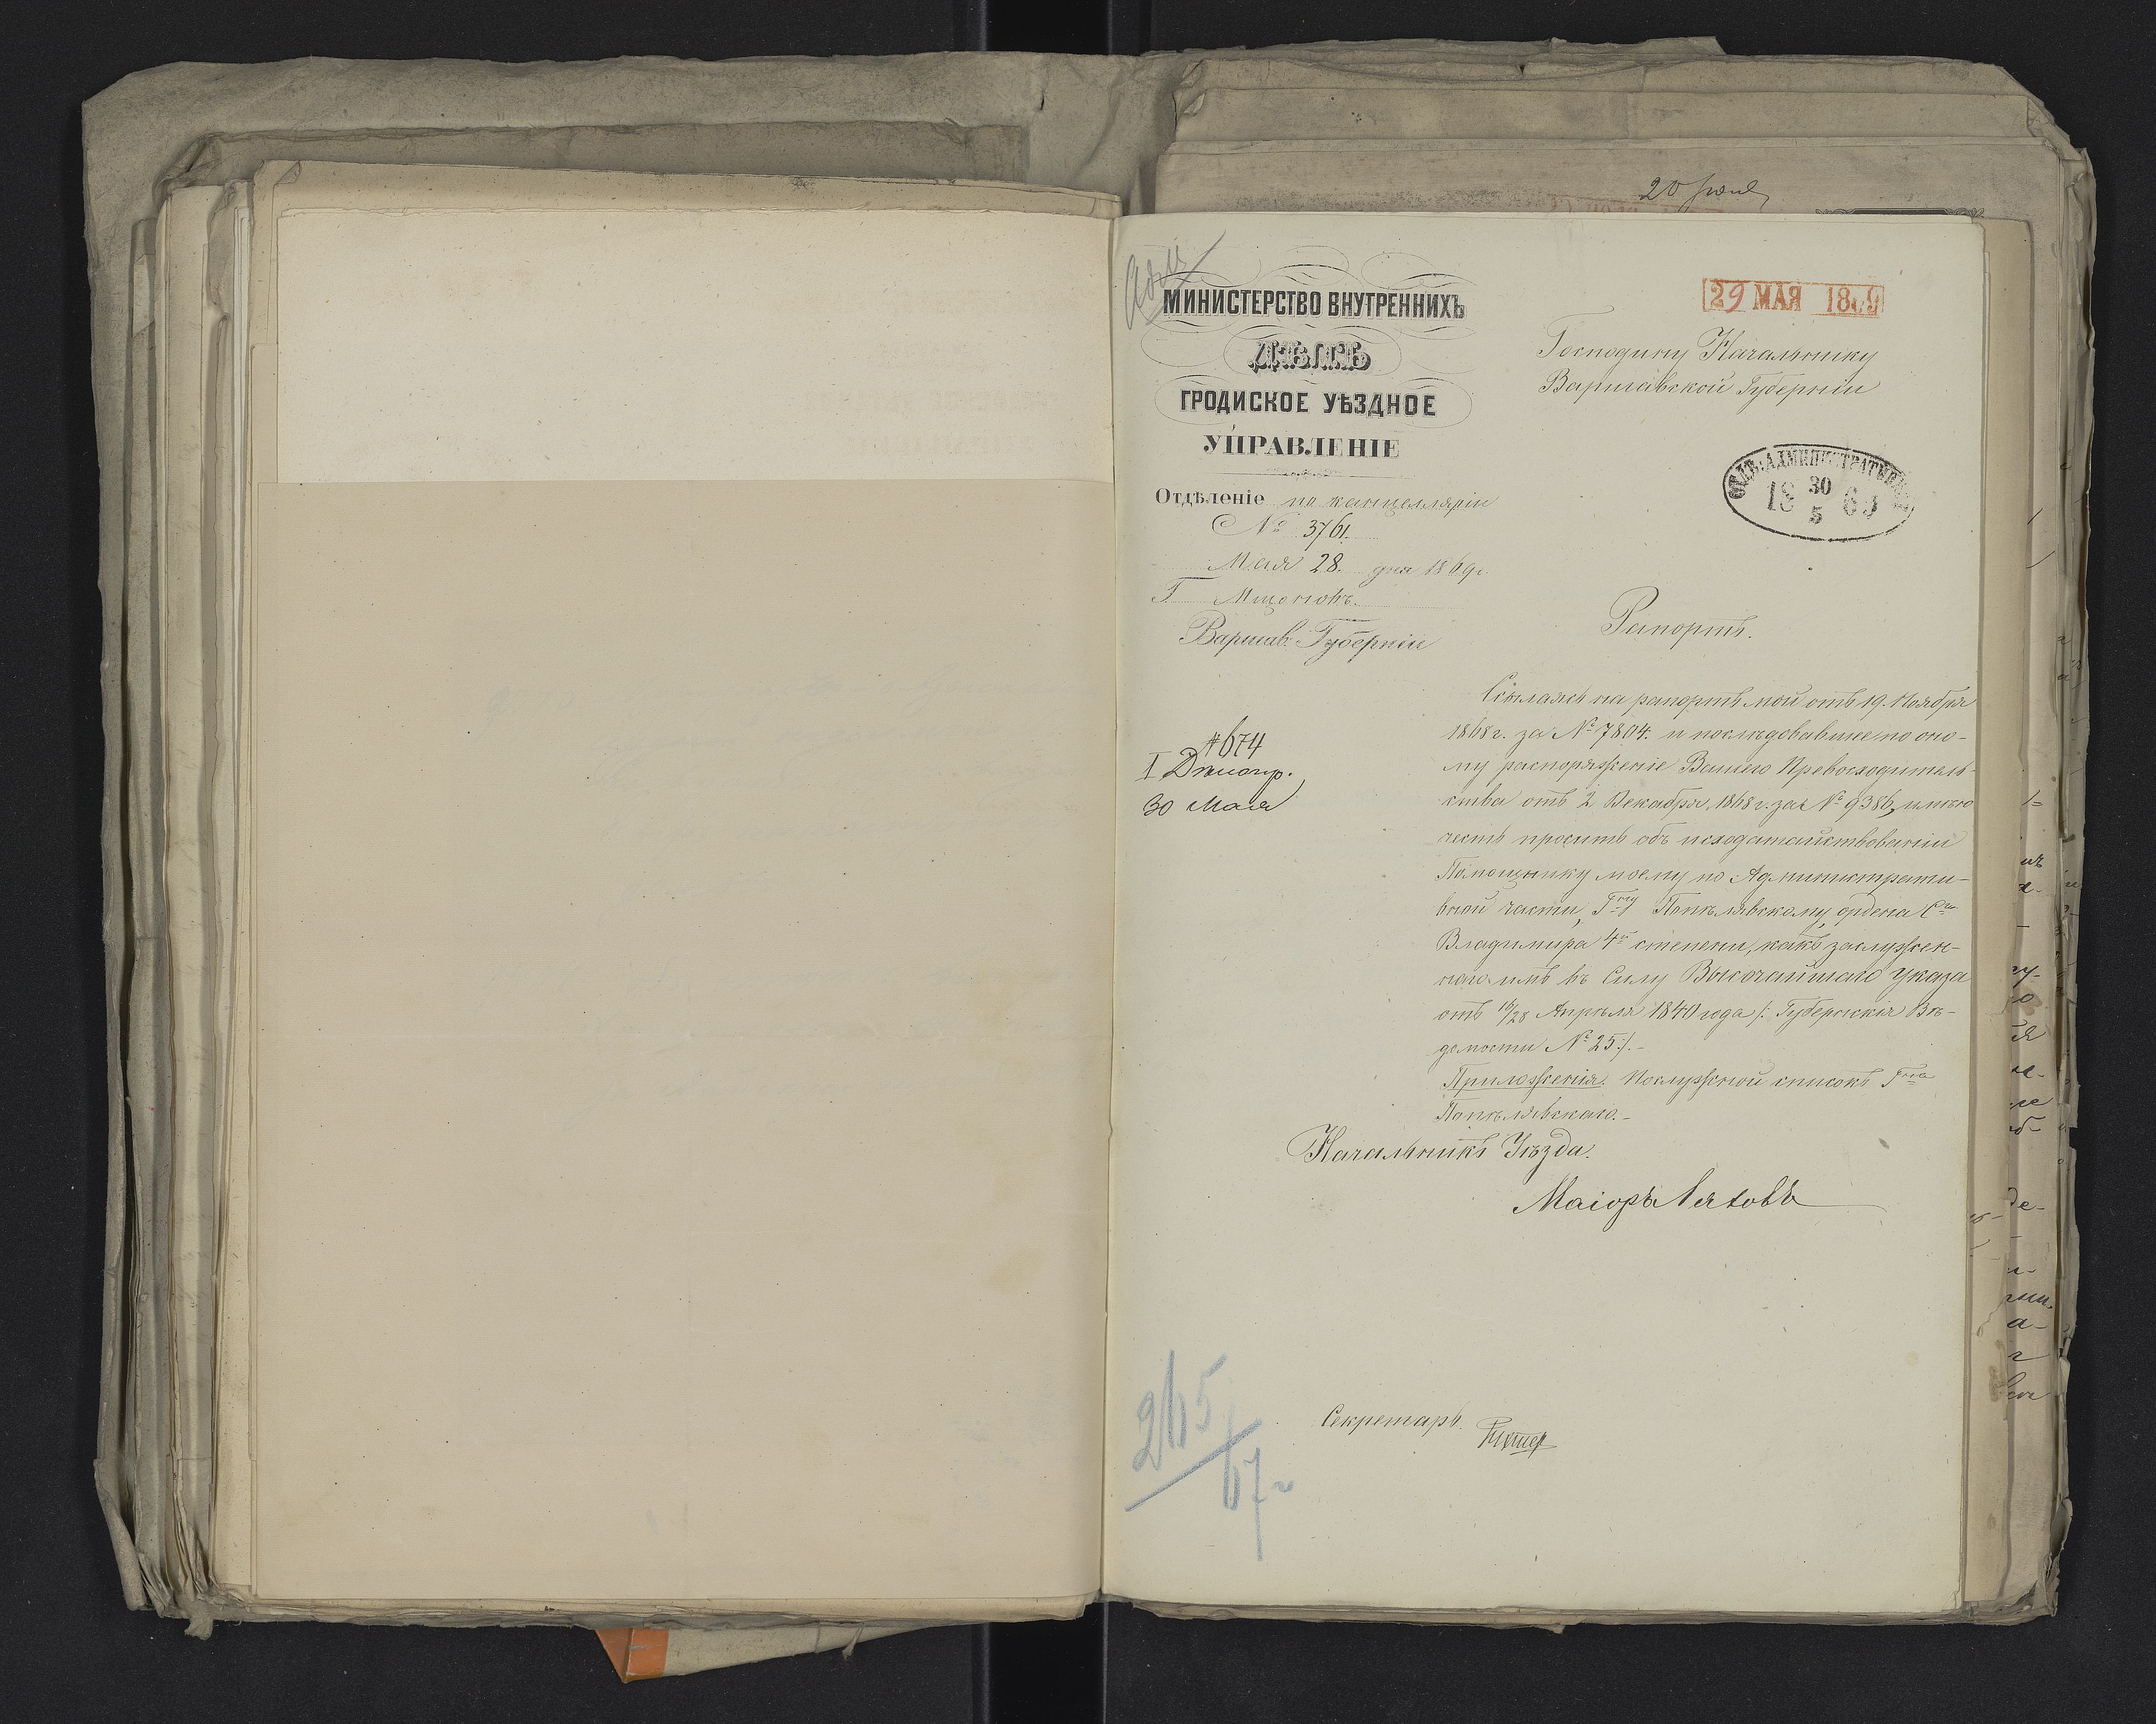 20 Іюня
29 МАЯ 1869
МИНИСТЕРСТВО ВНУТРЕННИХЪ
ДѢЛЪ
ГРОДИСКОЕ УѢЗДНОЕ
УПРАВЛЕНІЕ
Отдѣленіе по канцеляріи
№ 3761.
Мая 28. дня 1869 г.
Г Мщоновъ.
Варшав. Губерніи
Господину Начальнику
Варшавской Губерніи
ОТДѢЛ. АДМИНИСТРАТИВН.
18 30/5 69
Рапортъ.
№ 674
30 Мая
Ссылаясь на рапортъ мой отъ 19. Ноября
1868 г. за № 7804. и послѣдовавшее по оно-
му распоряженіе Вашего Превосходитель-
ства отъ 2 Декабря 1868 г. за № 9386, имѣю
честь просить объ исходатайствованіи
Помощнику моему по Администрати-
вной части, Гну Попѣлявскому, ордена Св.
Владимира 4й степени, какъ заслужен-
наго имъ въ силу Высочайшаго Указа
отъ 16/28 Апрѣля 1840 года /: Губернскія Вѣ-
домости № 25 :/. -
Приложенія: Послужной списокъ Гна
Попѣлявскаго. -
Начальникъ Уѣзда.
Маіоръ
Секретарь
265/67